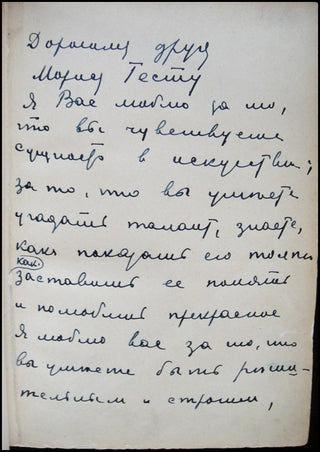 Дорогому другу
Морису Гесту
Я Вас люблю за то,
что вы чувствуете
сущность в искусстве;
за то, что вы умеете
угадать талант, знаете,
какъ показать его толпе
какъ
заставить ее понять
и полюбить прекрасное
Я люблю вас за то, что
вы умеете быть решительнымъ
и строгим,